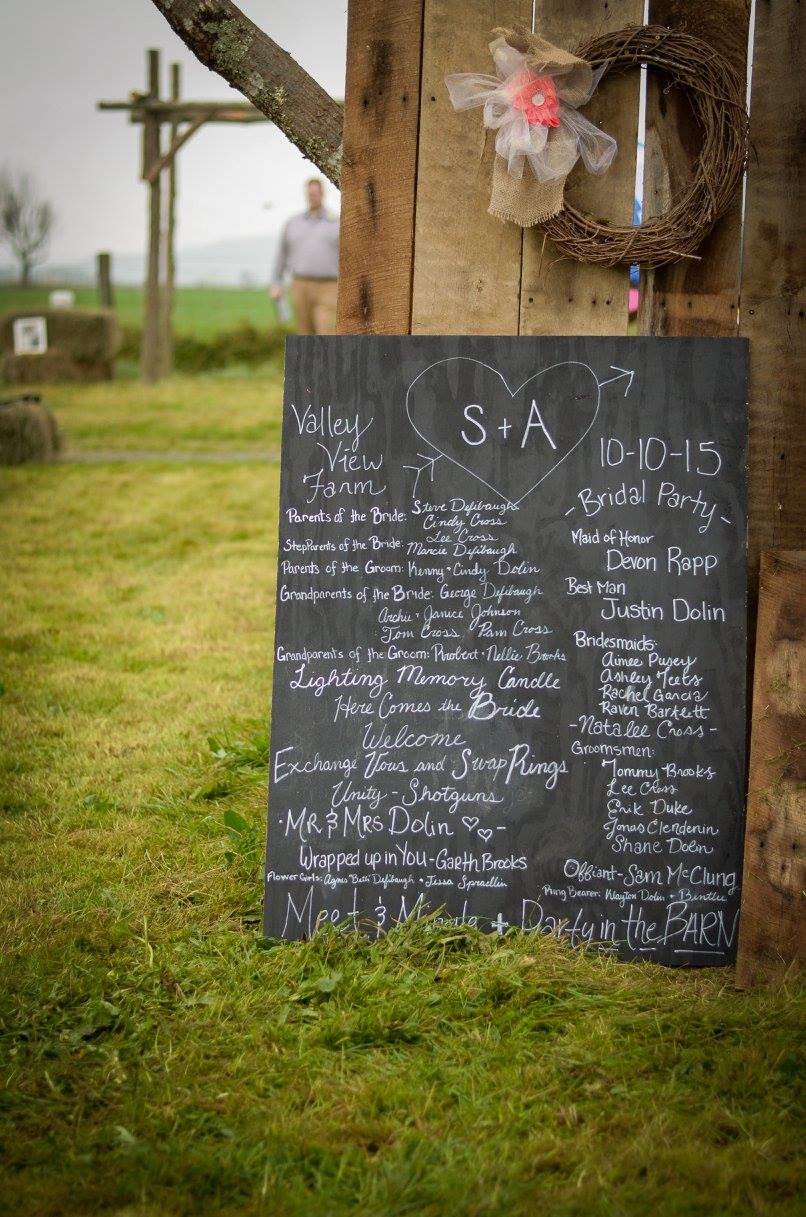 S + A
Valley
View
Farm
10-10-15
Parents of the Bride: Steve Defibaugh
Cindy Cross
StepParents of the Bride: Lee Cross
Marcie Defibaugh
Parents of the Groom: Kenny + Cindy Dolin
Grandparents of the Bride: George Defibaugh
Archie + Janice Johnson
Tom Cross Pam Cross
Grandparents of the Groom: + Nellie Brooks
Lighting Memory Candle
Here Comes the Bride
Welcome
Exchange Vows and Swap Rings
Unity - Shotguns
- Mr & Mrs Dolin -
Wrapped up in You - Garth Brooks
Flower Girls: Agnes "Beth" Defibaugh + Jessa Spradlin
- Bridal Party -
Maid of Honor
Devon Rapp
Best Man
Justin Dolin
Bridesmaids:
Aimee Pusey
Ashley Teets
Rachel Garcia
Raven Barkett
- Natalee Cross -
Groomsmen:
Tommy Brooks
Lee Cross
Erik Duke
Jonas Clendenin
Shane Dolin
Officant - Sam McClung
Ring Bearer: Klayton Dolin + Bentlee
Meet & Mingle + Party in the BARN